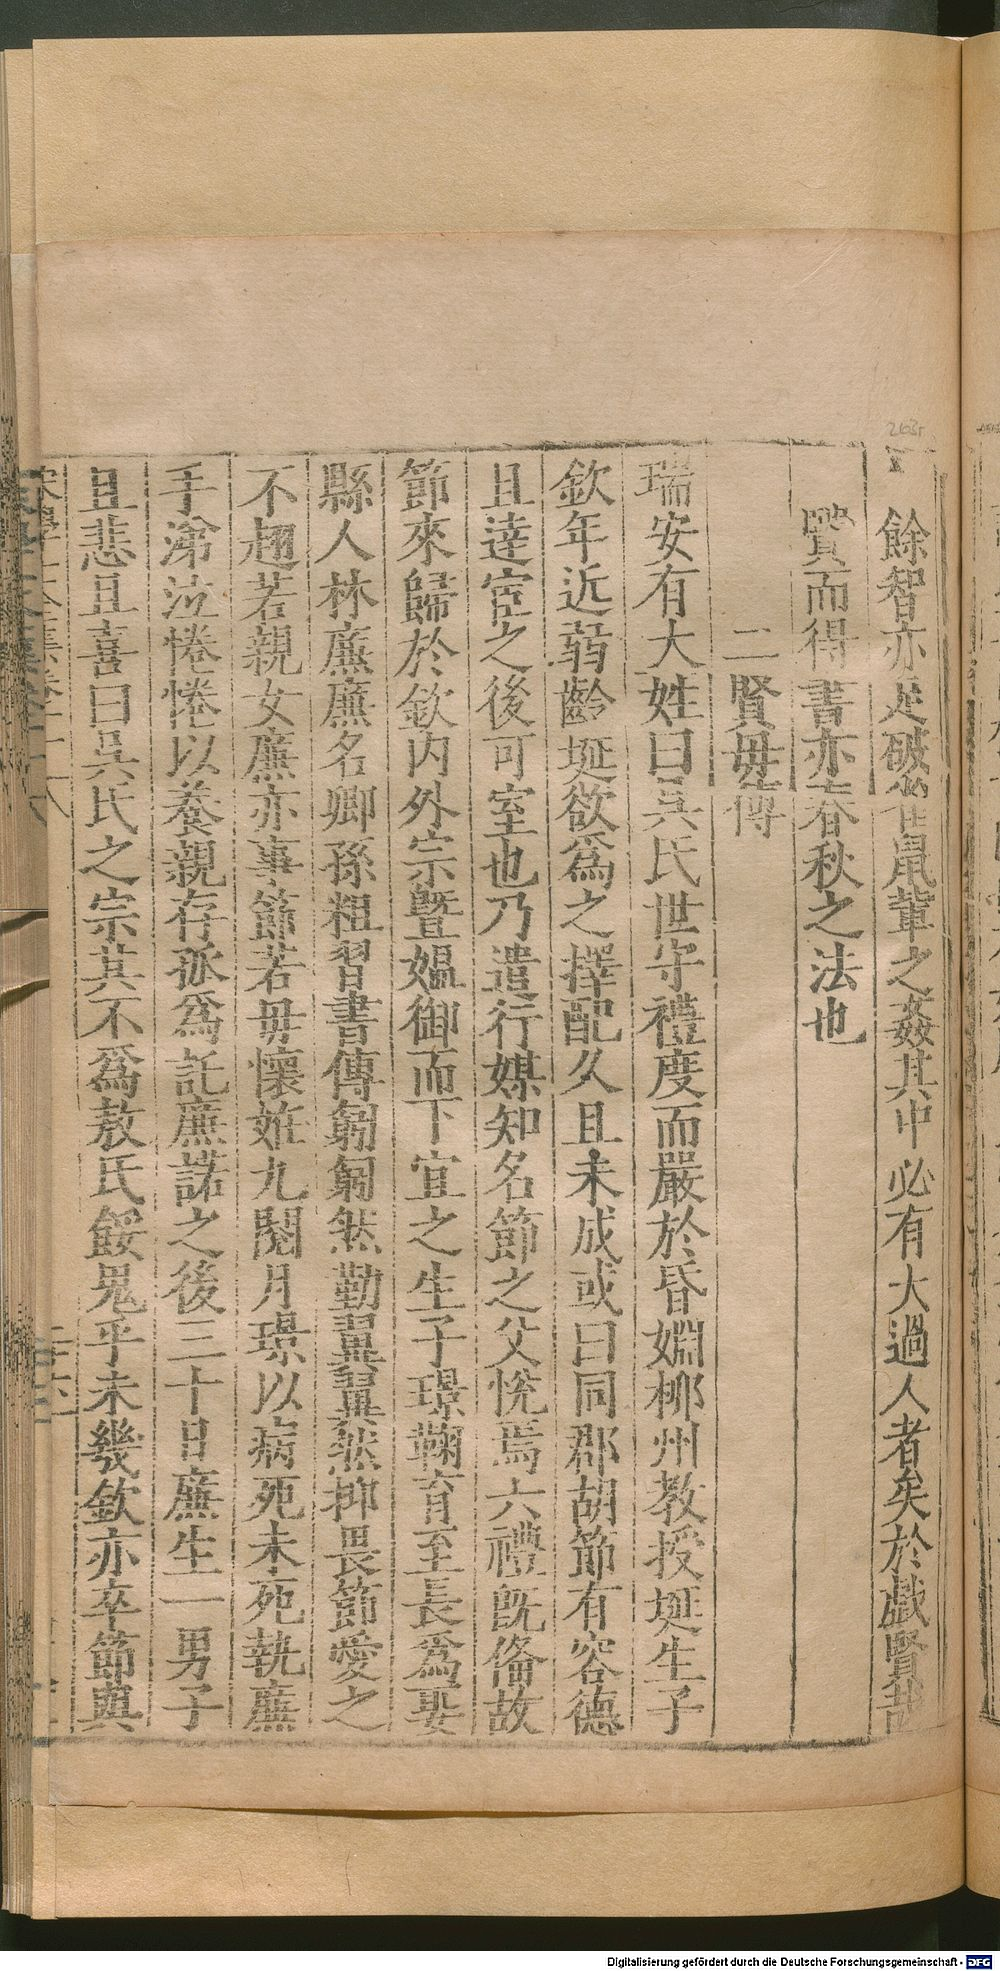 餘智亦足破雀鼠輩之姦其中必有大過人者矣於戲賢哉
賢而得書亦春秋之法也
二賢母傳
瑞安有大姓曰吳氏世守禮度而嚴於昏婣柳州教授埏生子
欽年近弱齡埏欲爲之擇配久且未成或曰同郡胡節有容德
且逹宦之後可室也乃遣行媒知名節之父悅焉六禮旣俻故
節來歸於欽内外宗曁媼御而下宜之生子璟鞠育至長爲娶
縣人林廡廡名卿孫粗習書傳匑匑然勤翼翼然抑畏節愛之
不趐若親女廡亦事節若毋懷姙九閱月璟以病死未死執廡
手涕泣惓惓以養親存孤爲託廡諾之後三十日廡生一男子
且悲且喜曰吳氏之宗其不爲敖氏餒鬼乎未幾欽亦卒節與
263r
Digitalisierung gefördert durch die Deutsche Forschungsgemeinschaft - DFG